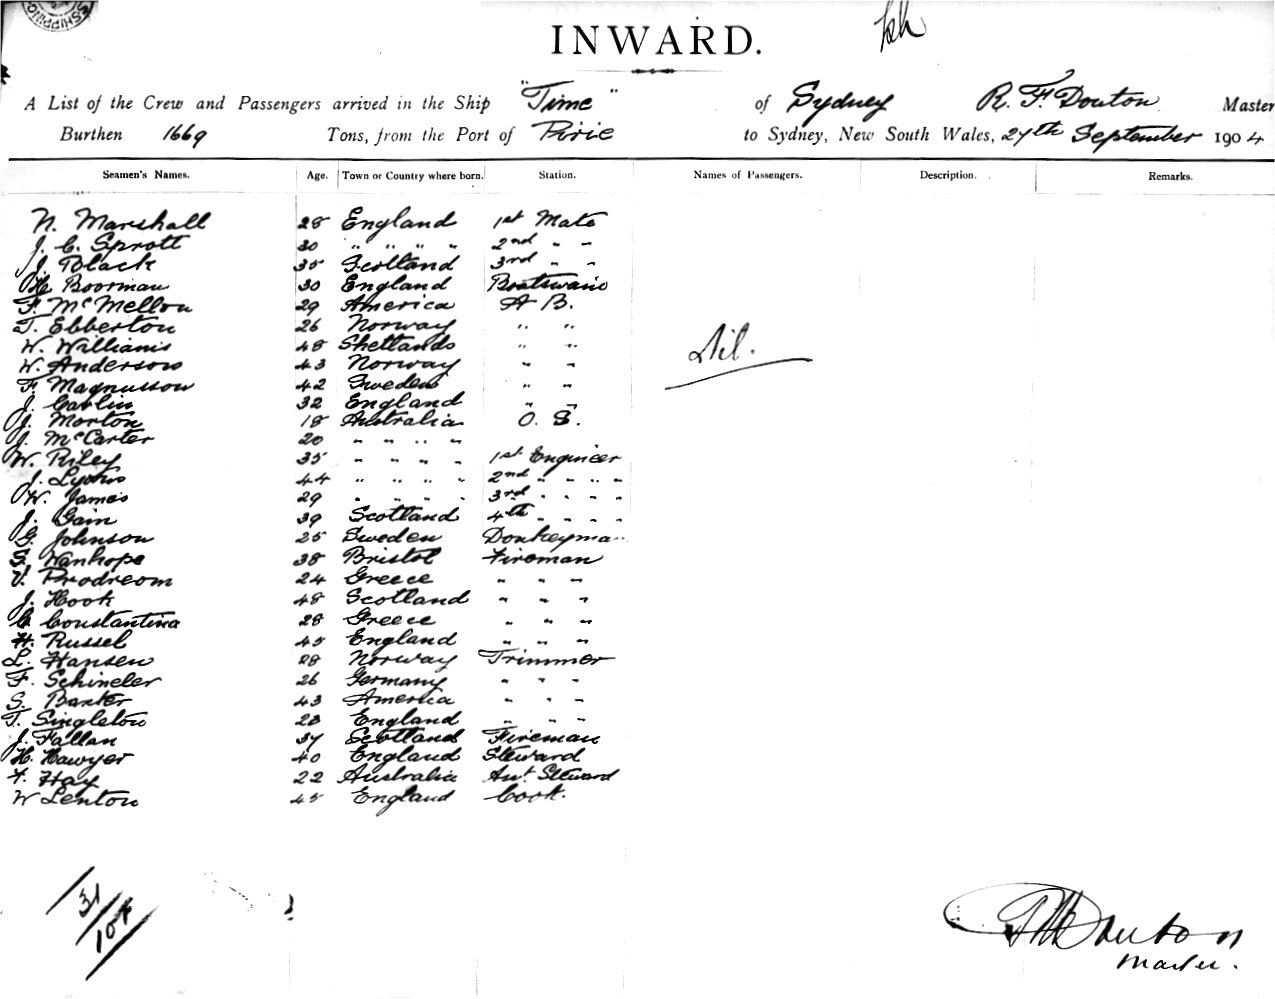 SHIPPING
INWARD.
A List of the Crew and Passengers arrived in the Ship "Time" of Sydney R. F. Douton Master
Burthen 1669 Tons, from the Port of Pirie to Sydney, New South Wales, 27th September 1904
Seamen's Names. Age. Town or Country where born. Station. Names of Passengers. Description. Remarks.
N. Marshall 28 England 1st Mate
J. C. Sprott 30 " " " " 2nd " "
J. Black 35 Scotland 3rd " "
H. Boorman 30 England Boatswain
F. McMellon 29 America A B.
T. Ebberton 26 Norway " "
W. Williams 48 Shetlands " "
Nil.
W. Anderson 43 Norway " "
F. Magnusson 42 Sweden " "
J. Carlin 32 England " "
J. Morton 18 Australia O. S.
J. McCarter 20 " " " "
W. Riley 35 " " " " 1st Engineer
J. Lyons 44 " " " " 2nd " " " "
W. James 29 " " " " 3rd " " " "
J. Gain 39 Scotland 4th " " " "
G. Johnson 25 Sweden Donkeyman
S. Wanhope 38 Bristol Fireman
V. Prodreom 24 Greece " " "
J. Hook 48 Scotland " " "
C. Constantina 28 Greece " " "
H. Russel 45 England " " "
L. Hansen 28 Norway Trimmer
F. Schineler 26 Germany " " "
S. Baxter 43 America " " "
T. Singleton 23 England " " "
J. Fallan 37 Scotland Fireman
H. Hawyer 40 England Steward
F. Hay 22 Australia Ast. Steward
W Lenton 45 England Cook.
31
Douton
Master.